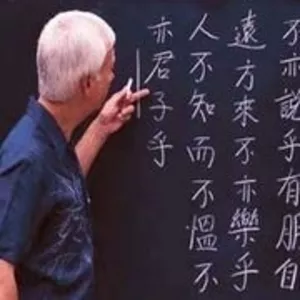 不亦説乎有朋自
遠方來不亦樂乎
人不知而不慍不
亦君子乎